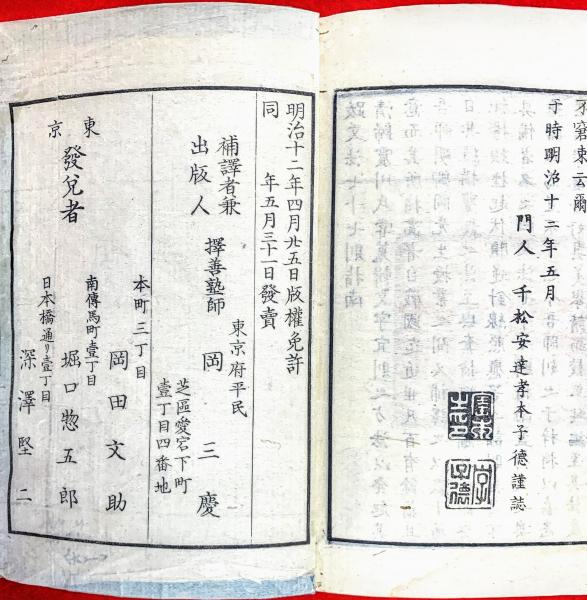 才窮束云爾
于時明治十二年五月
門人千松安達孝本子德謹誌
明治十二年四月廿五日版權免許
同年五月三十一日發賣
補譯者兼
出版人
擇善塾師
岡三慶
東京府平民
芝區愛宕下町
壹丁目四番地
東京
發兌者
本町三丁目
岡田文助
南傳馬町壹丁目
堀口惣五郎
日本橋通り壹丁目
深澤堅二